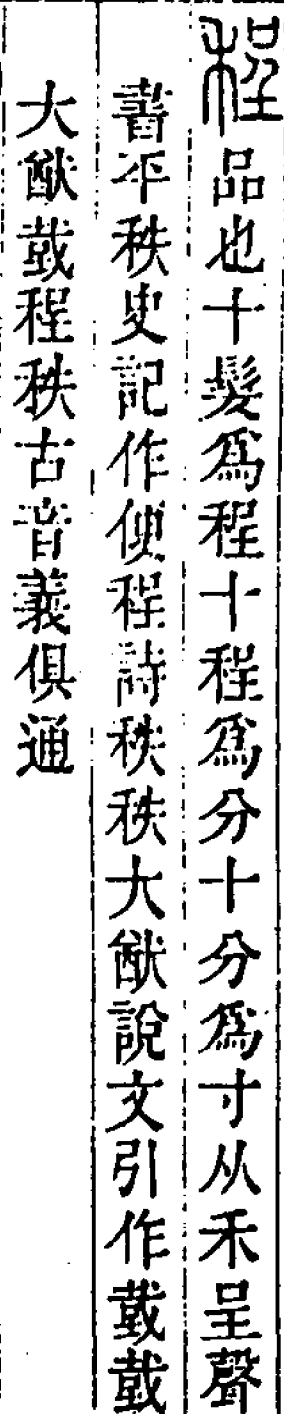 程品也十髮爲程十程爲分十分爲寸从禾呈聲
書平秩史記作便程詩秩秩大猷說文引作𢧜𢧜
大猷𢧜程秩古音義俱通